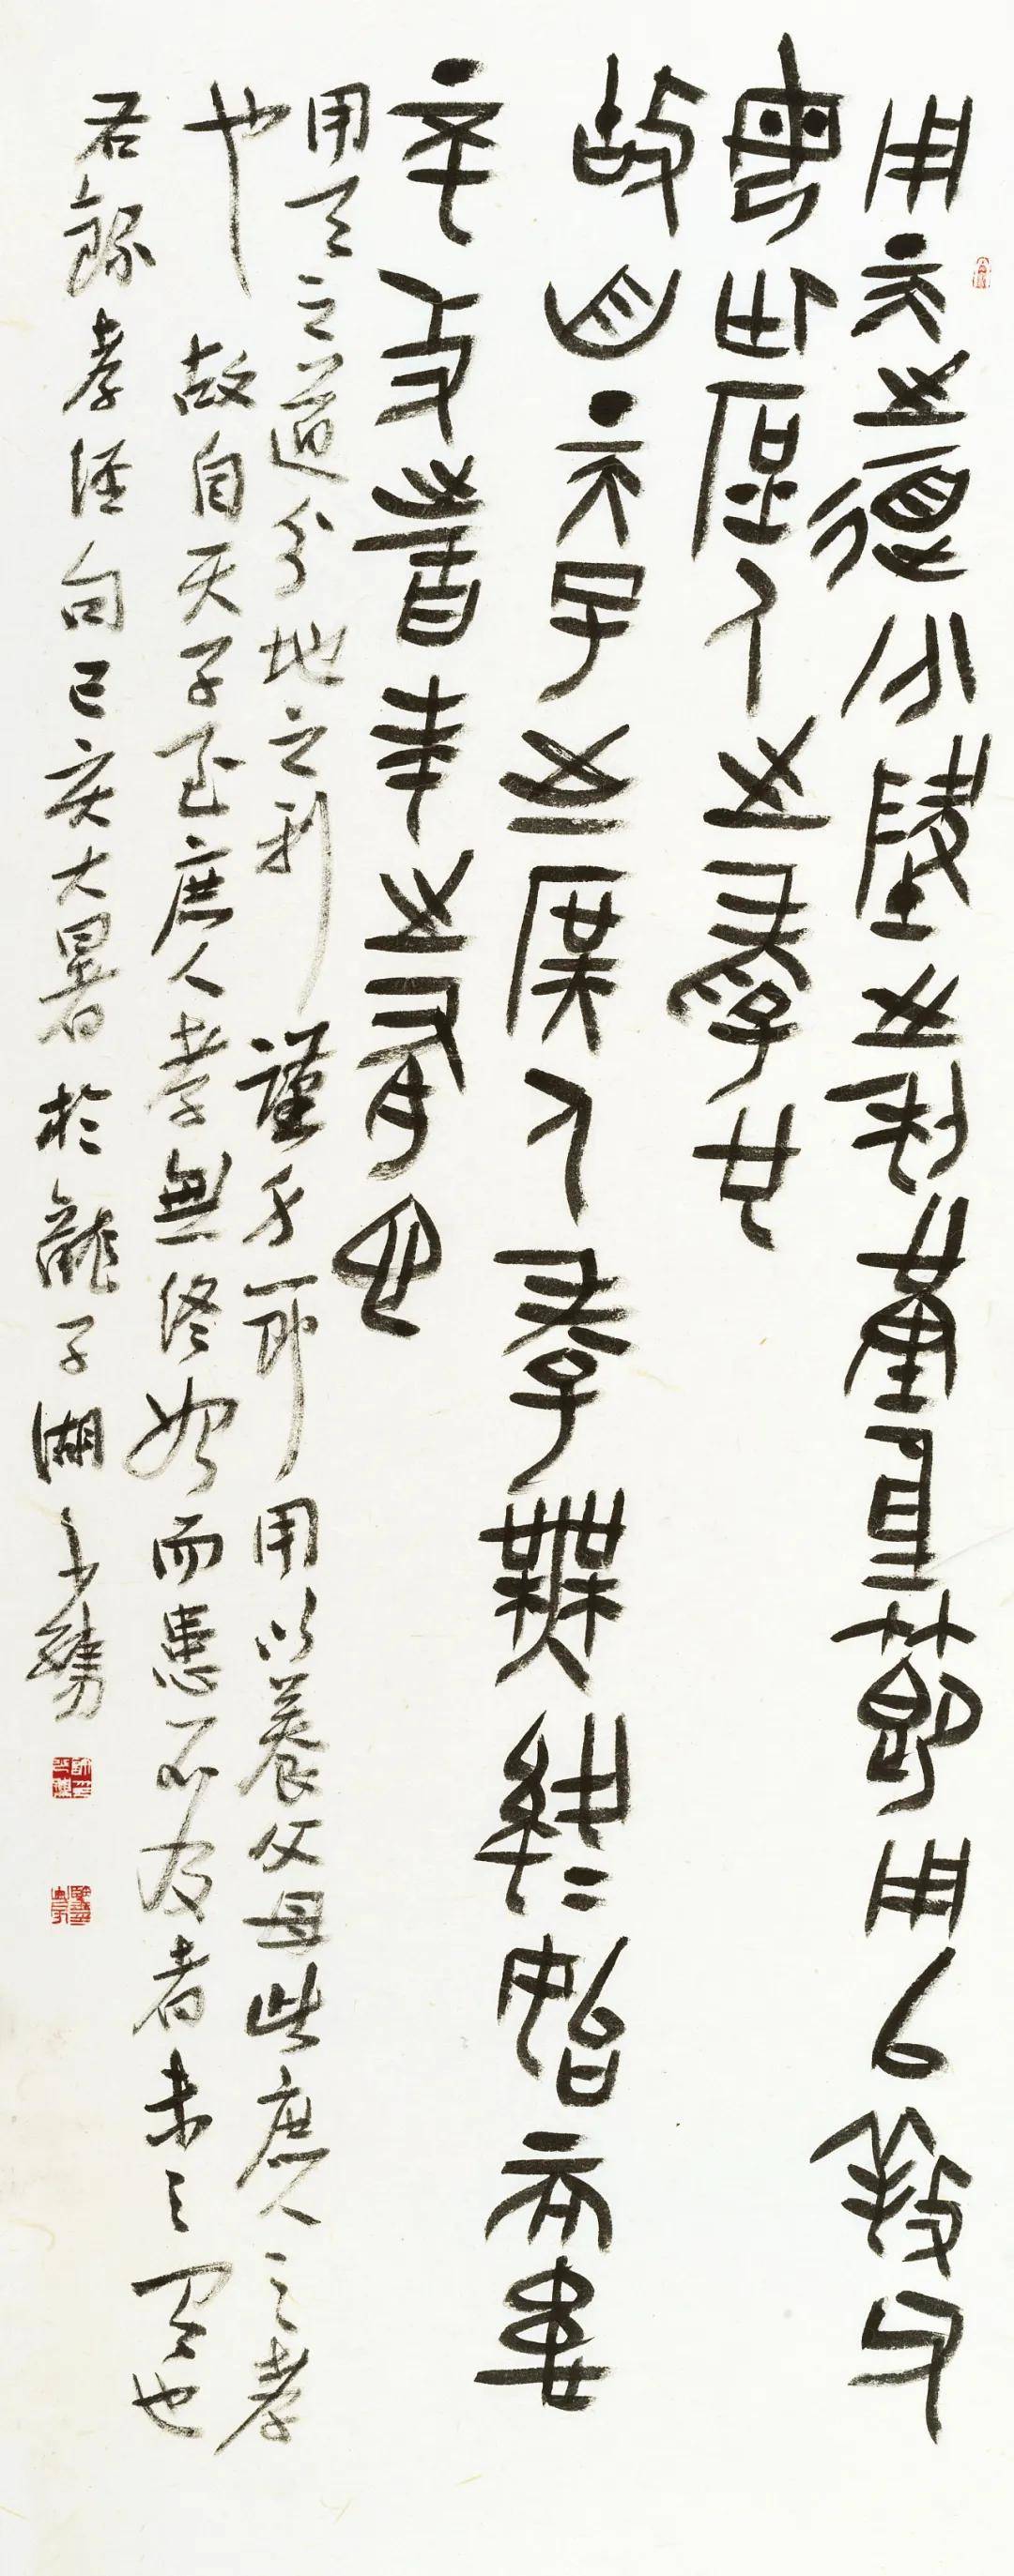 用天之道分地之利謹身節用以養父
母此庶人之孝也
故自天子至庶人孝無終始而患
不及者未之有也
用天之道分地之利謹身節用以養父母此庶人之孝
也故自天子至庶人孝無終始而患不及者未之有也
右錄孝經句己亥大暑於龍子湖